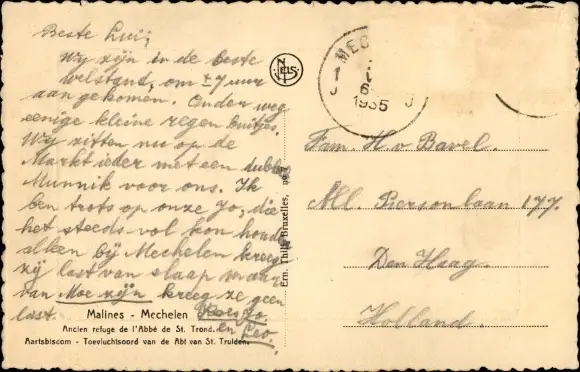 Beste Lui,
Wy zijn in de beste
welstand, om ± 7 uur
aan gekomen. Onder weg
eenige kleine regen buitjes.
Wy zitten nu op de
Markt ieder met een dubble
Munnik voor ons. Ik
ben trots op onze Jo, die
het steeds vol kon houden
alleen bij Mechelen kreeg
zij last van slaap maar
van Moe zijn kreeg ze geen
last.
Kees Jo.
en Leo.
Malines - Mechelen
Ancien refuge de l'Abbé de St. Trond.
Aartsbiscom - Toevluchtsoord van de Abt van St. Truiden.
NELS
Ern. Thill, Bruxelles,
MEC
1935
Fam. H v Bavel.
All. Piersonlaan 177.
Den Haag.
Holland.